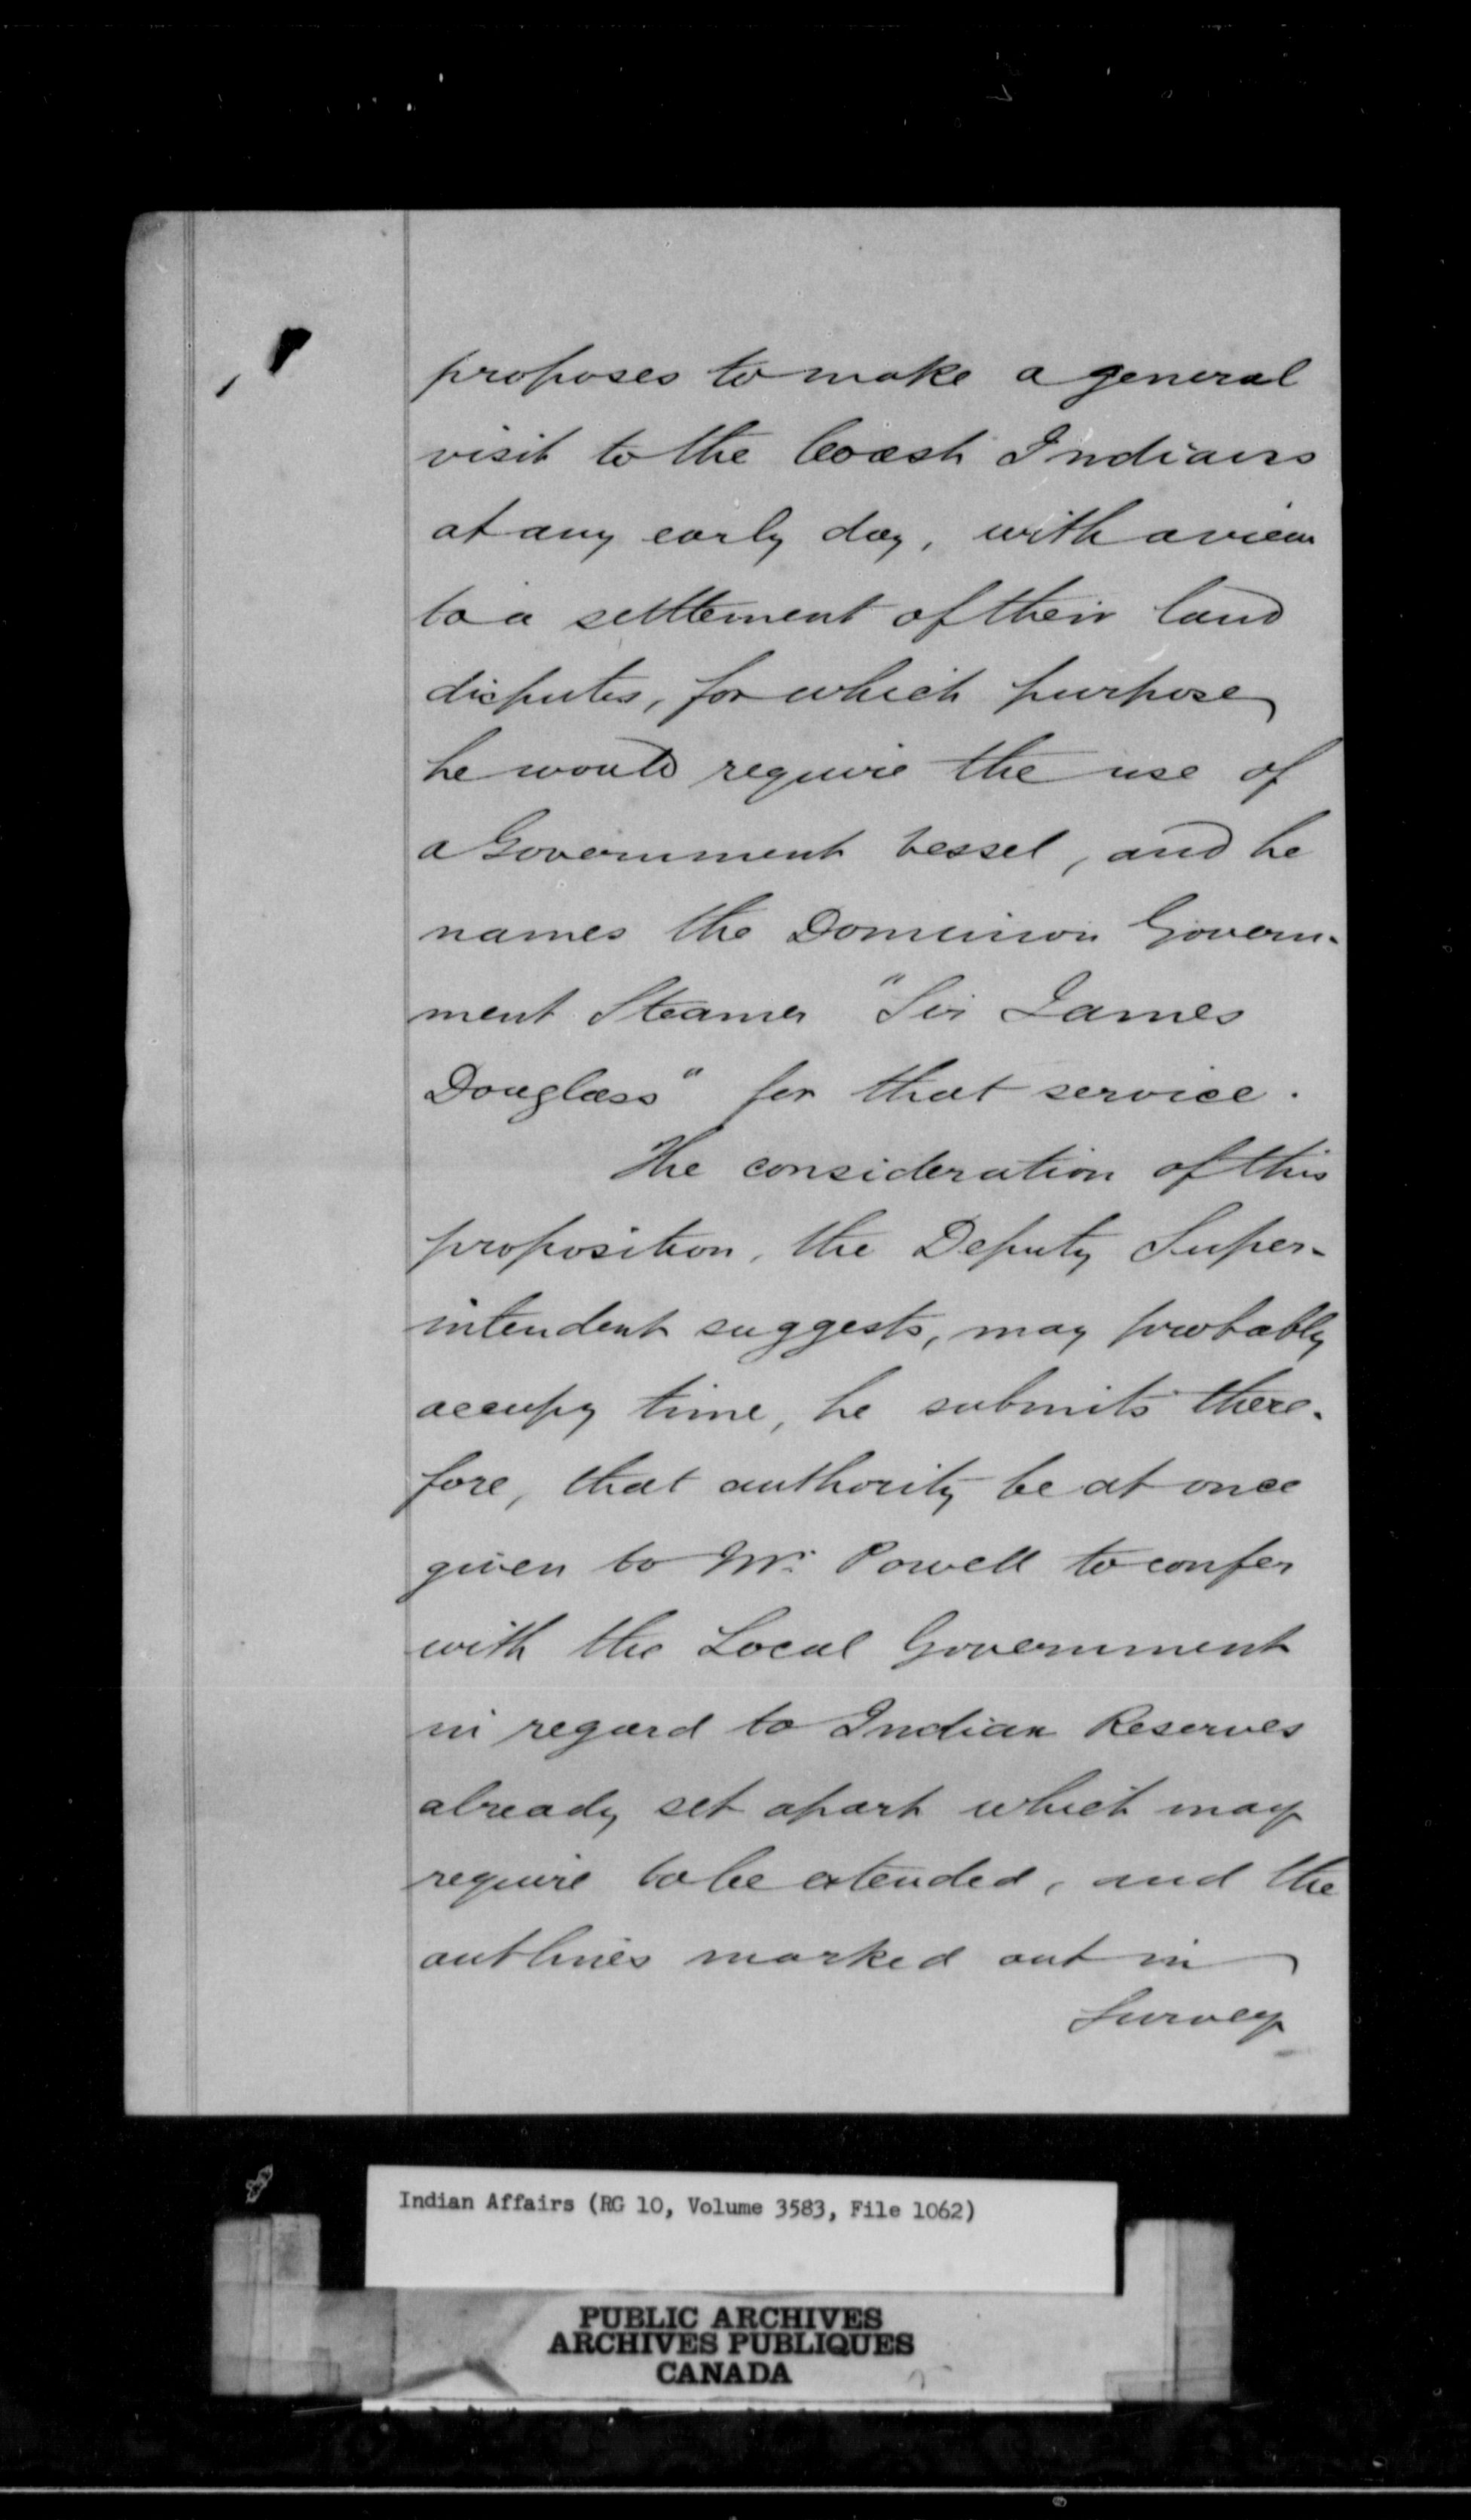 proposes to make a general
visit to the Coast Indians
at any early day, with a view
to a settlement of their land
disputes, for which purpose
he would require the use of
a Government vessel, and he
names the Dominion Govern-
ment Steamer "Sir James
Douglass" for that service.
The consideration of this
proposition, the Deputy Super-
intendent suggests, may probably
occupy time, he submits there-
fore, that authority be at once
given to Mr. Powell to confer
with the Local Government
in regard to Indian Reserves
already set apart which may
require to be extended, and the
outlines marked out in
Survey
Indian Affairs (RG 10, Volume 3583, File 1062)
PUBLIC ARCHIVES
ARCHIVES PUBLIQUES
CANADA